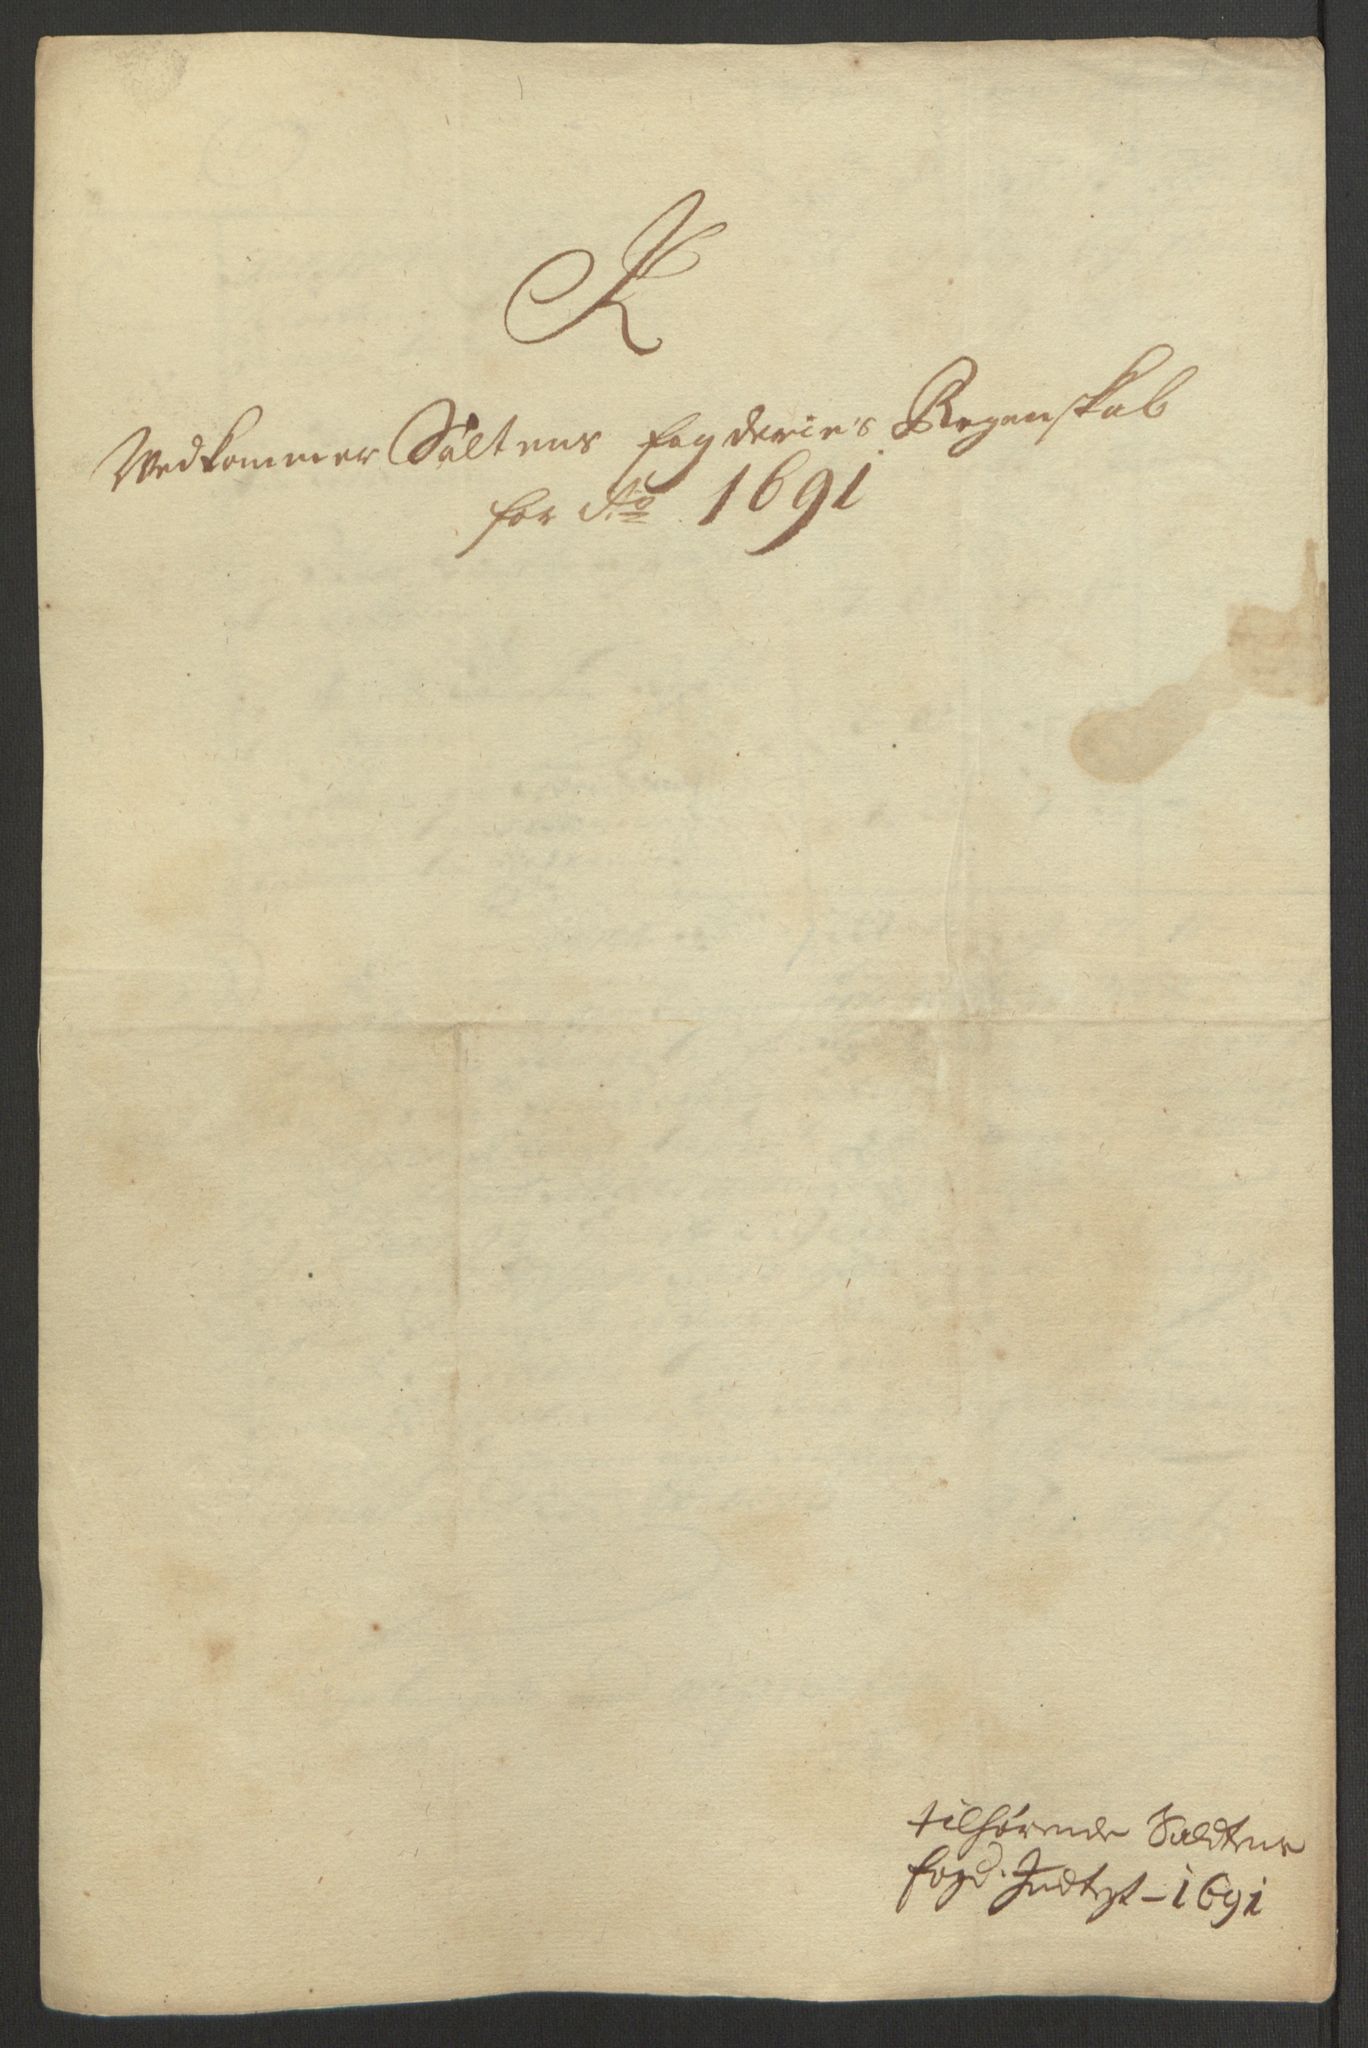 K
Vedkommer Saltens fogderie's Regenskab
for Ao 1691
tilhørende Saldten
fogd. Indtegt - 1691